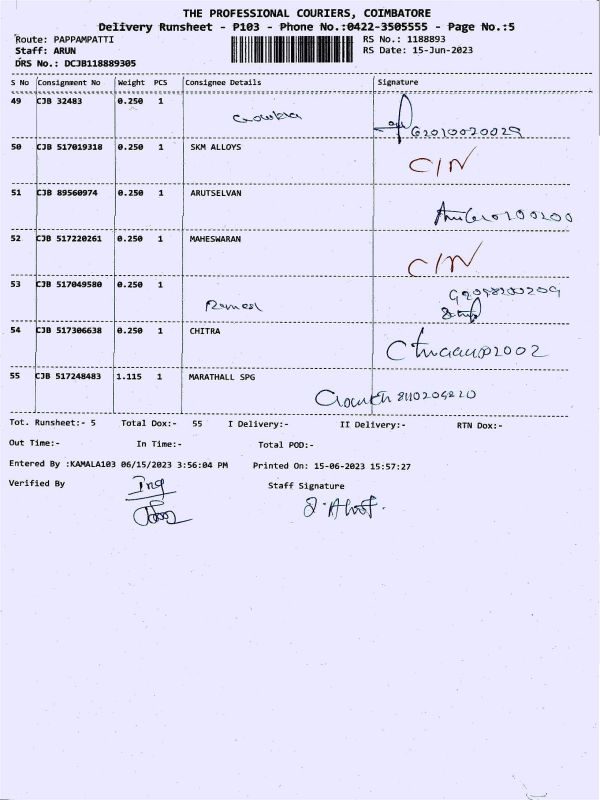 THE PROFESSIONAL COURIERS, COIMBATORE
Delivery Runsheet - P103 - Phone No.:0422-3505555 - Page No.:5
Route: PAPPAMPATTI RS No.: 1188893
Staff: ARUN RS Date: 15-Jun-2023
DRS No.: DCJB118889305
S No Consignment No Weight PCS Consignee Details Signature
49 CJB 32483 0.250 1
50 CJB 517019318 0.250 1 SKM ALLOYS C/N
51 CJB 89560974 0.250 1 ARUTSELVAN
52 CJB 517220261 0.250 1 MAHESWARAN C/N
53 CJB 517049580 0.250 1
54 CJB 517306638 0.250 1 CHITRA
55 CJB 517248483 1.115 1 MARATHALL SPG
Tot. Runsheet:- 5 Total Dox:- 55 I Delivery:- II Delivery:- RTN Dox:-
Out Time:- In Time:- Total POD:-
Entered By :KAMALA103 06/15/2023 3:56:04 PM Printed On: 15-06-2023 15:57:27
Verified By Staff Signature